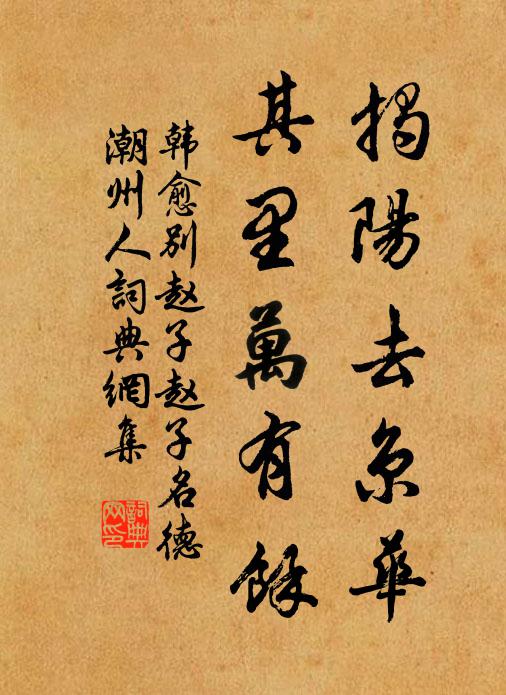 揭陽去京華
其里萬有餘
韩愈别赵子赵子名德
潮州人詞典網集
詞典网印